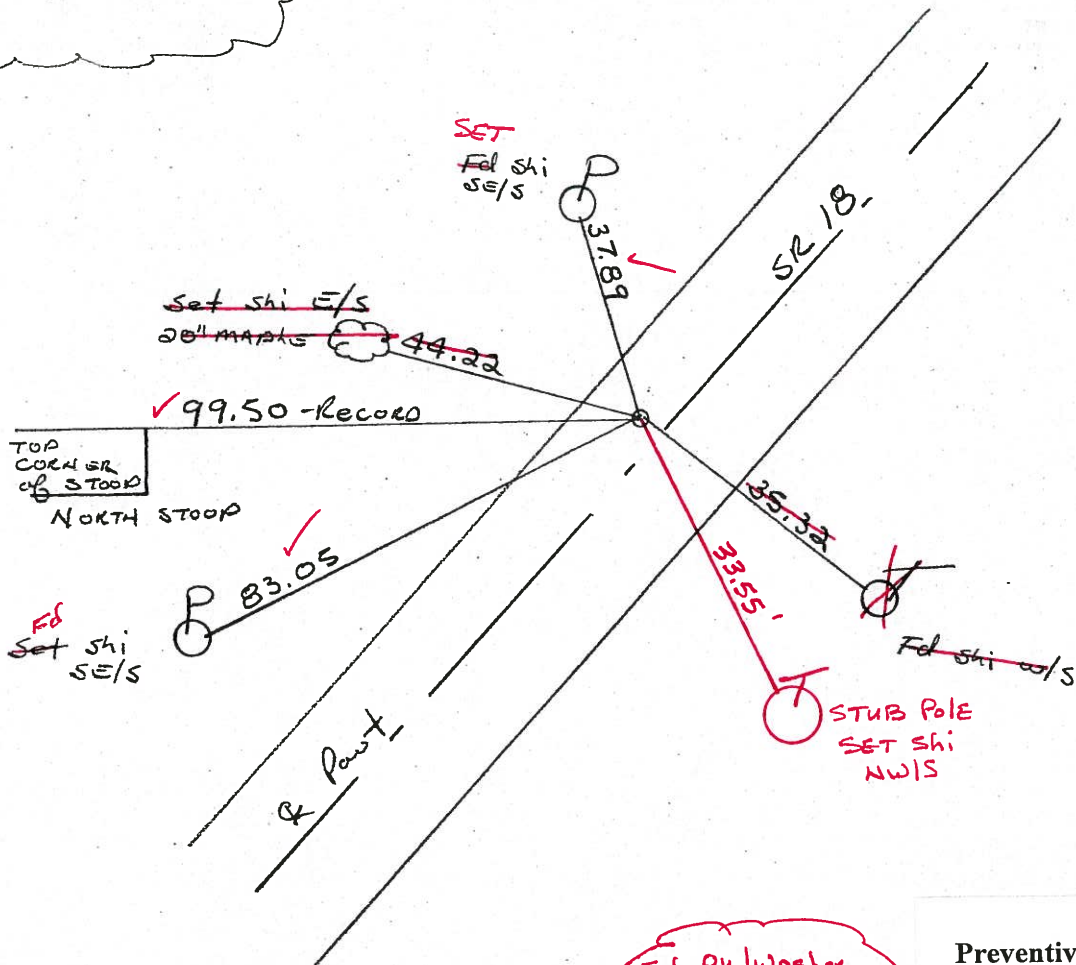 SET
Fd shi
SE/S
37.89
SR 18
Set shi E/S
20" MAPLE
44.22
99.50 - RECORD
TOP
CORNER
of STOOP
NORTH STOOP
83.05
Fd
Set shi
SE/S
35.32
33.55'
Fd shi w/S
STUB POLE
SET Shi
NW/S
℄ Pavt
Preventiv